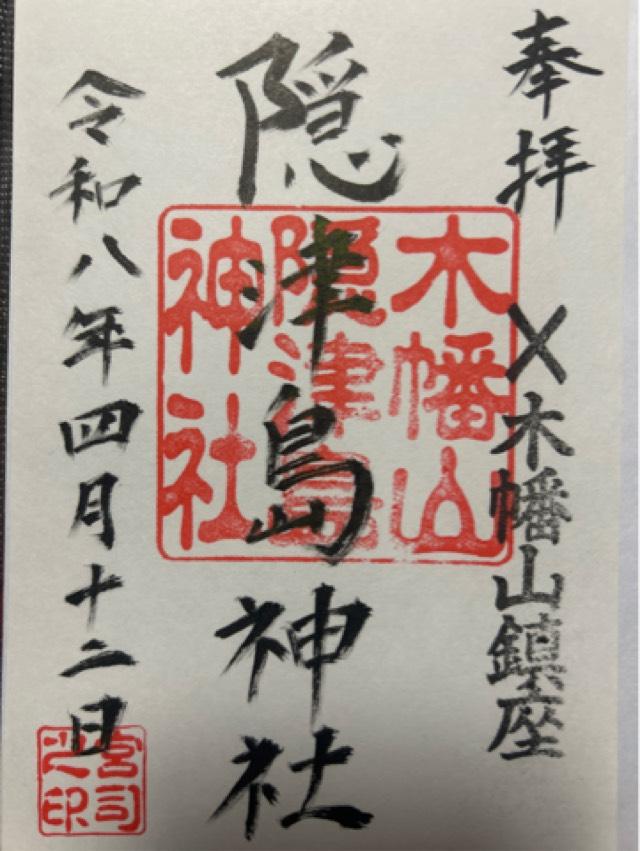 奉拝
〆木幡山鎮座
隠津島神社
木幡山
隠津島
神社
令和八年四月十二日
宮司
之印